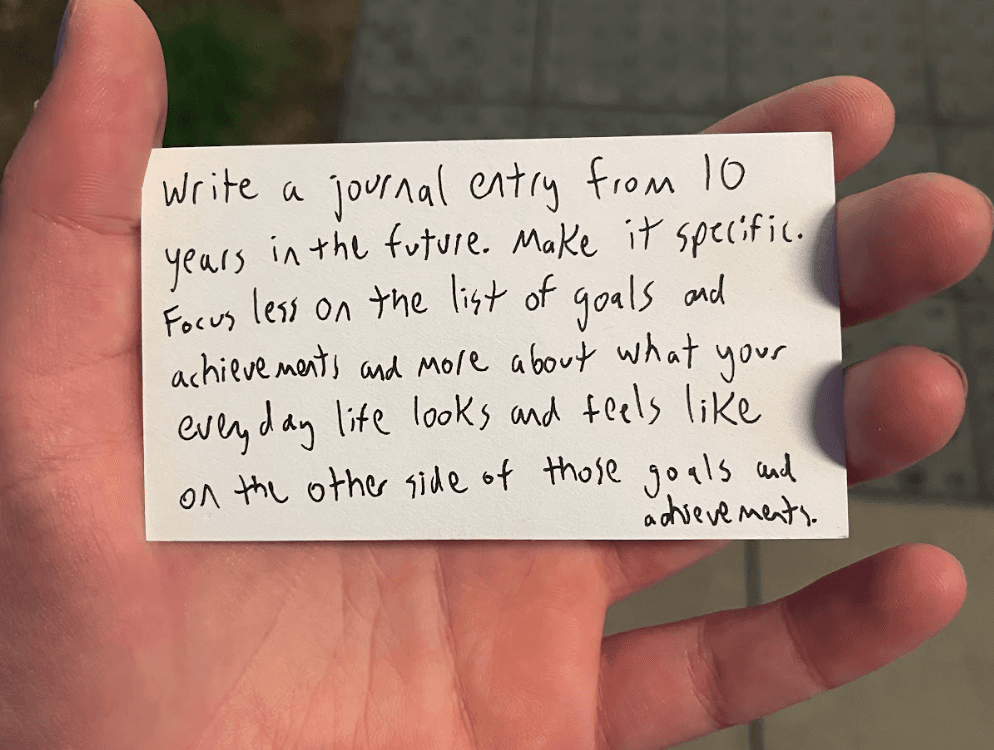 Write a journal entry from 10
years in the future. Make it specific.
Focus less on the list of goals and
achievements and more about what your
everyday life looks and feels like
on the other side of those goals and
achievements.